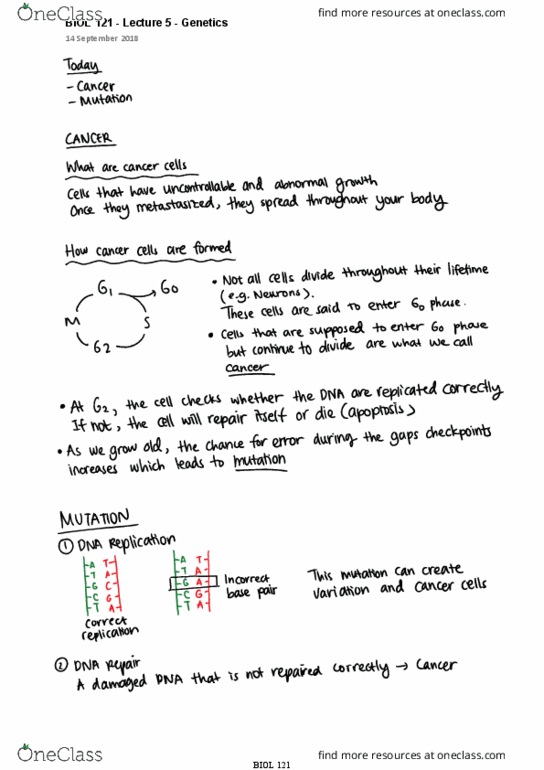 OneClass find more resources at oneclass.com
BIOL 121 - Lecture 5 - Genetics
14 September 2018
Today
- Cancer
- Mutation
CANCER
What are cancer cells
Cells that have uncontrollable and abnormal growth
Once they metastasized, they spread throughout your body
How cancer cells are formed
G1 → G0
M S
G2
• Not all cells divide throughout their lifetime
(e.g. Neurons).
These cells are said to enter G0 phase.
• Cells that are supposed to enter G0 phase
but continue to divide are what we call
cancer
• At G2, the cell checks whether the DNA are replicated correctly
If not, the cell will repair itself or die (apoptosis)
• As we grow old, the chance for error during the gaps checkpoints
increases which leads to mutation
MUTATION
① DNA Replication
A T
T A
G C
C G
T A
correct
replication
A T
T A
G A
C G
T A
Incorrect
base pair
This mutation can create
variation and cancer cells
② DNA Repair
A damaged DNA that is not repaired correctly → Cancer
OneClass find more resources at oneclass.com
BIOL 121